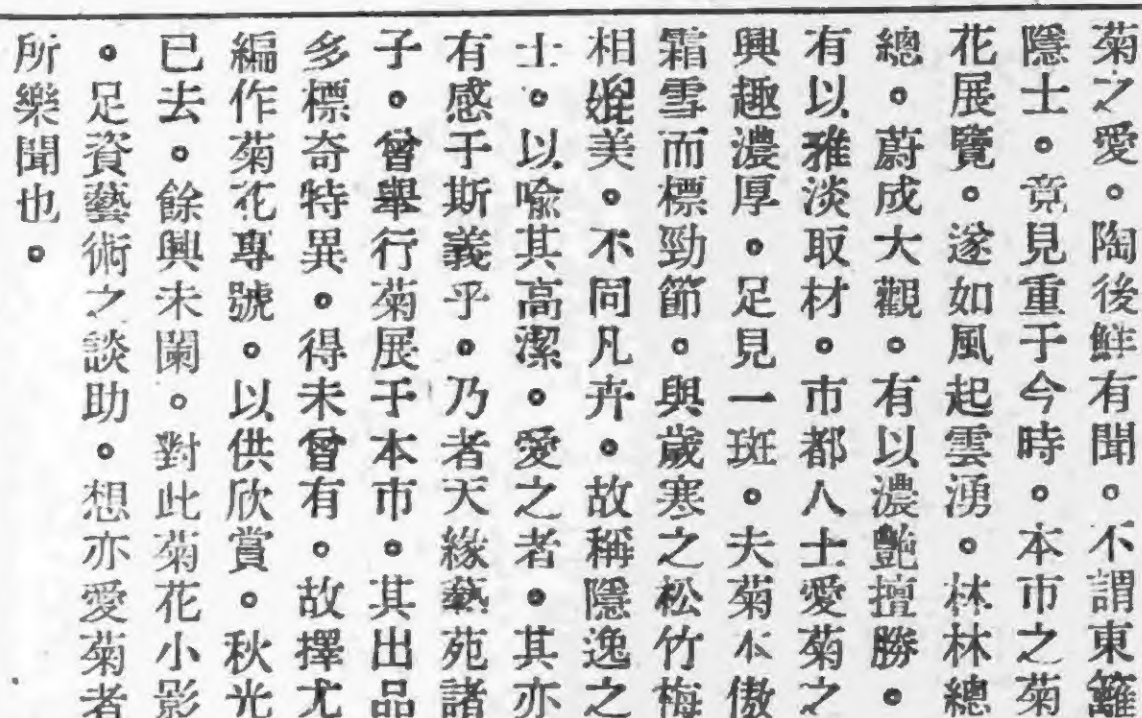 菊之愛。陶後鮮有聞。不謂東籬
隱士。竟見重于今時。本市之菊
花展覽。遂如風起雲湧。林林總
總。蔚成大觀。有以濃艷擅勝。
有以雅淡取材。市都人士愛菊之
興趣濃厚。足見一斑。夫菊本傲
霜雪而標勁節。與歲寒之松竹梅
相媲美。不同凡卉。故稱隱逸之
士。以喻其高潔。愛之者。其亦
有感于斯義乎。乃者天緣藝苑諸
子。曾舉行菊展于本市。其出品
多標奇特異。得未曾有。故擇尤
編作菊花專號。以供欣賞。秋光
已去。餘興未闌。對此菊花小影
。足資藝術之談助。想亦愛菊者
所樂聞也。